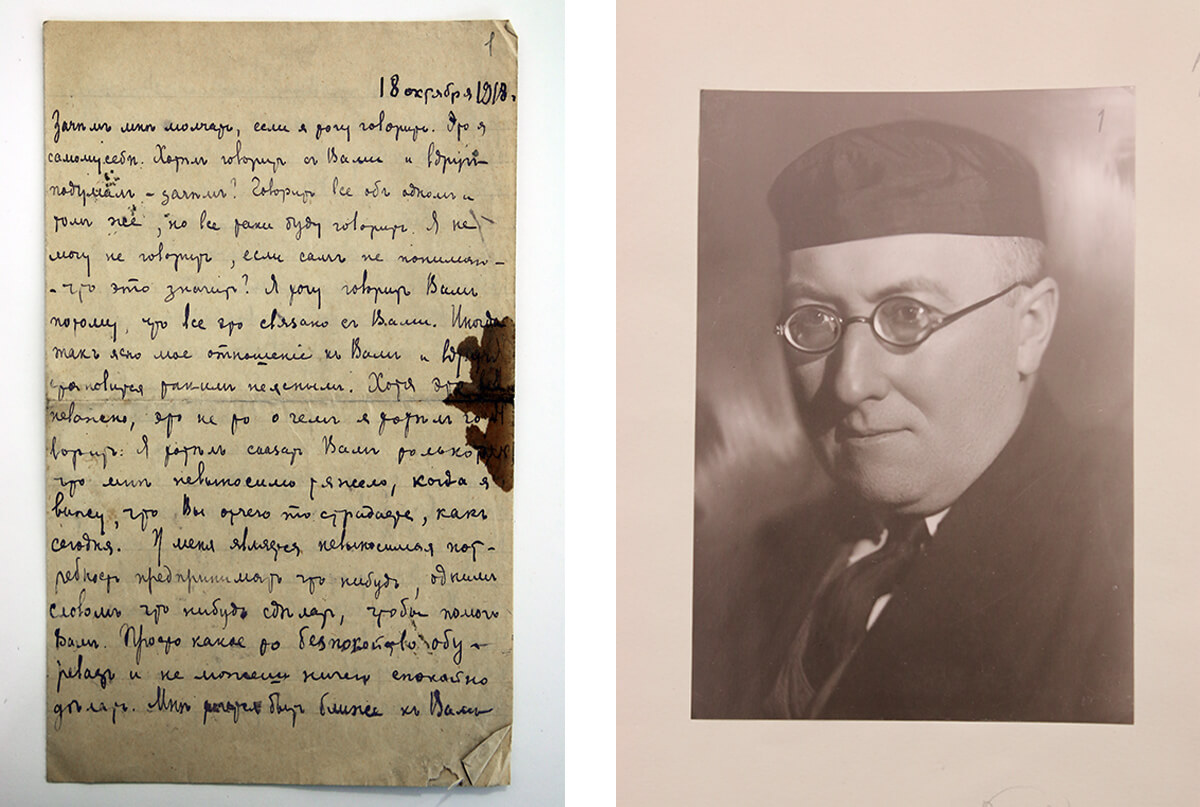 1
18 октября 1918 г.
Зачѣмъ мнѣ молчать, если я хочу говорить. Это я
самому себѣ. Хотѣлъ говорить съ Вами и вдругъ
подумалъ – зачѣмъ? Говорить все объ одномъ и
томъ же, но все таки буду говорить. Я не
могу не говорить, если самъ не понимаю –
- что это значитъ? Я хочу говорить Вамъ
потому, что все это связано съ Вами. Иногда
такъ ясно мое отношеніе къ Вамъ и вдругъ
становится такимъ неяснымъ. Хотя это
неважно, это не то о чемъ я хотѣлъ го-
ворить. Я хотѣлъ сказать Вамъ только
что мнѣ невыносимо тяжело, когда я
вижу, что Вы отчего то страдаете, какъ
сегодня. У меня является невыносимая пот-
ребность предпринимать что нибудь, однимъ
словомъ что нибудь сдѣлать, чтобы помочь
Вамъ. Просто какое то безпокойство обу-
реваетъ и не можешь ничего спокойно
дѣлать. Мнѣ хочется быть ближе къ Вамъ
1